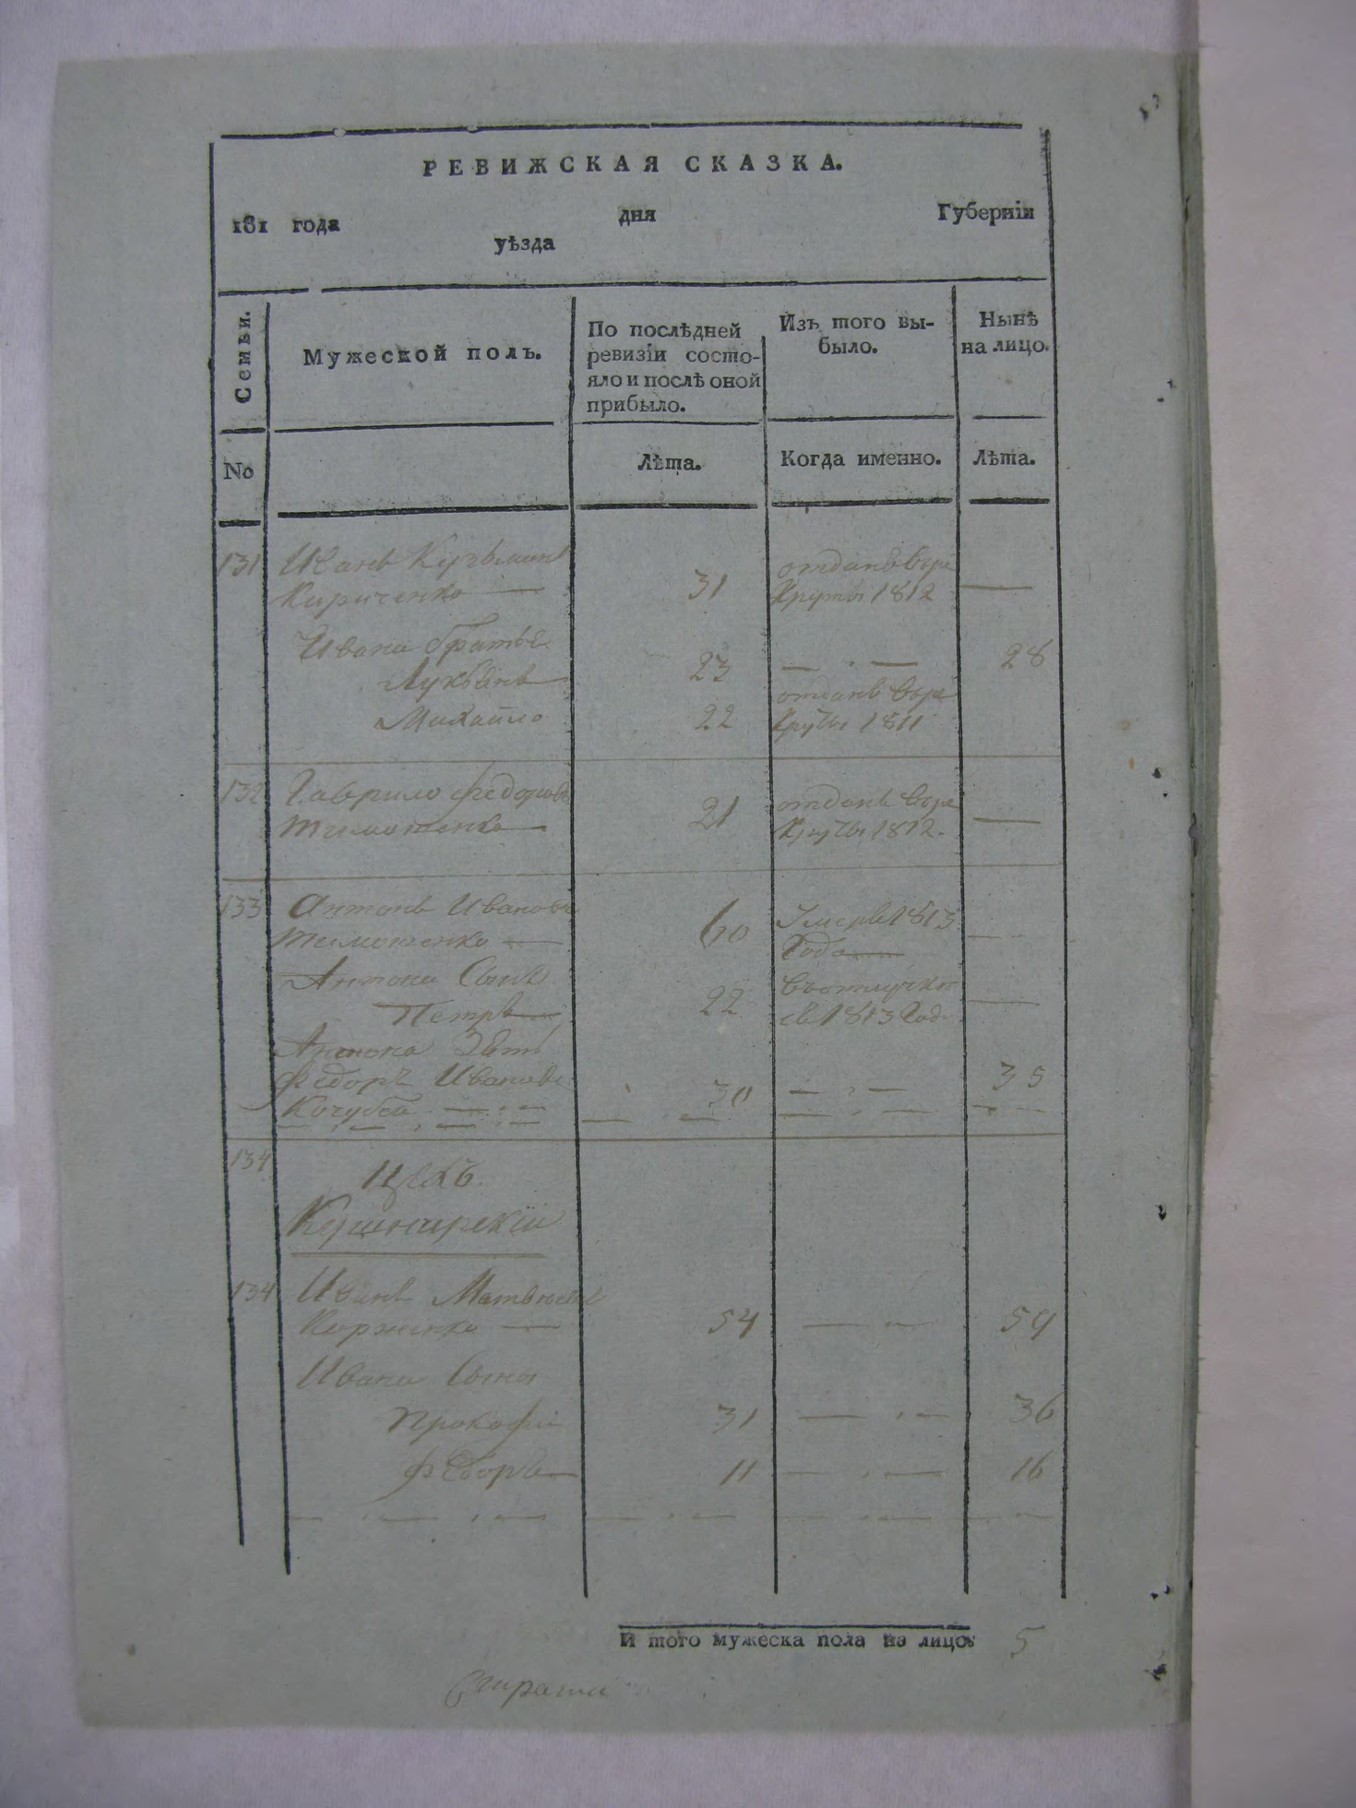 РЕВИЖСКАЯ СКАЗКА.
181 года дня Губерніи
уѣзда
Семьи.
Мужеской полъ.
По послѣдней
ревизіи состо-
яло и послѣ оной
прибыло.
Изъ того вы-
было.
Нынѣ
на лицо.
No
Лѣта.
Когда именно.
Лѣта.
131 Иванъ Кузьминъ
Кириченко — 31
отданъ въре
Круты 1812 —
Ивана братья
Лукьянъ 23 — . — 28
Михайло 22
отданъ въре
Круты 1811
132 Гаврило Федоровъ
Тимошенко — 21
отданъ въре
Круты 1812. —
133 Антонъ Ивановъ
Тимошенко — 60
Умеръ 1813
Года —
Антона Сынъ
Петръ — 22
въ отлучки
съ 1813 Года —
Антона Зять
Федоръ Ивановъ
Кочубей 30 — . — 35
134
Цехъ
Кушнирскій
134 Иванъ Матвѣевъ
Корженко — 54 — 54
Ивана Сыны
Прокофій 31 — . — 36
Федоръ — 11 — . — 16
И того мужеска пола на лицо 5